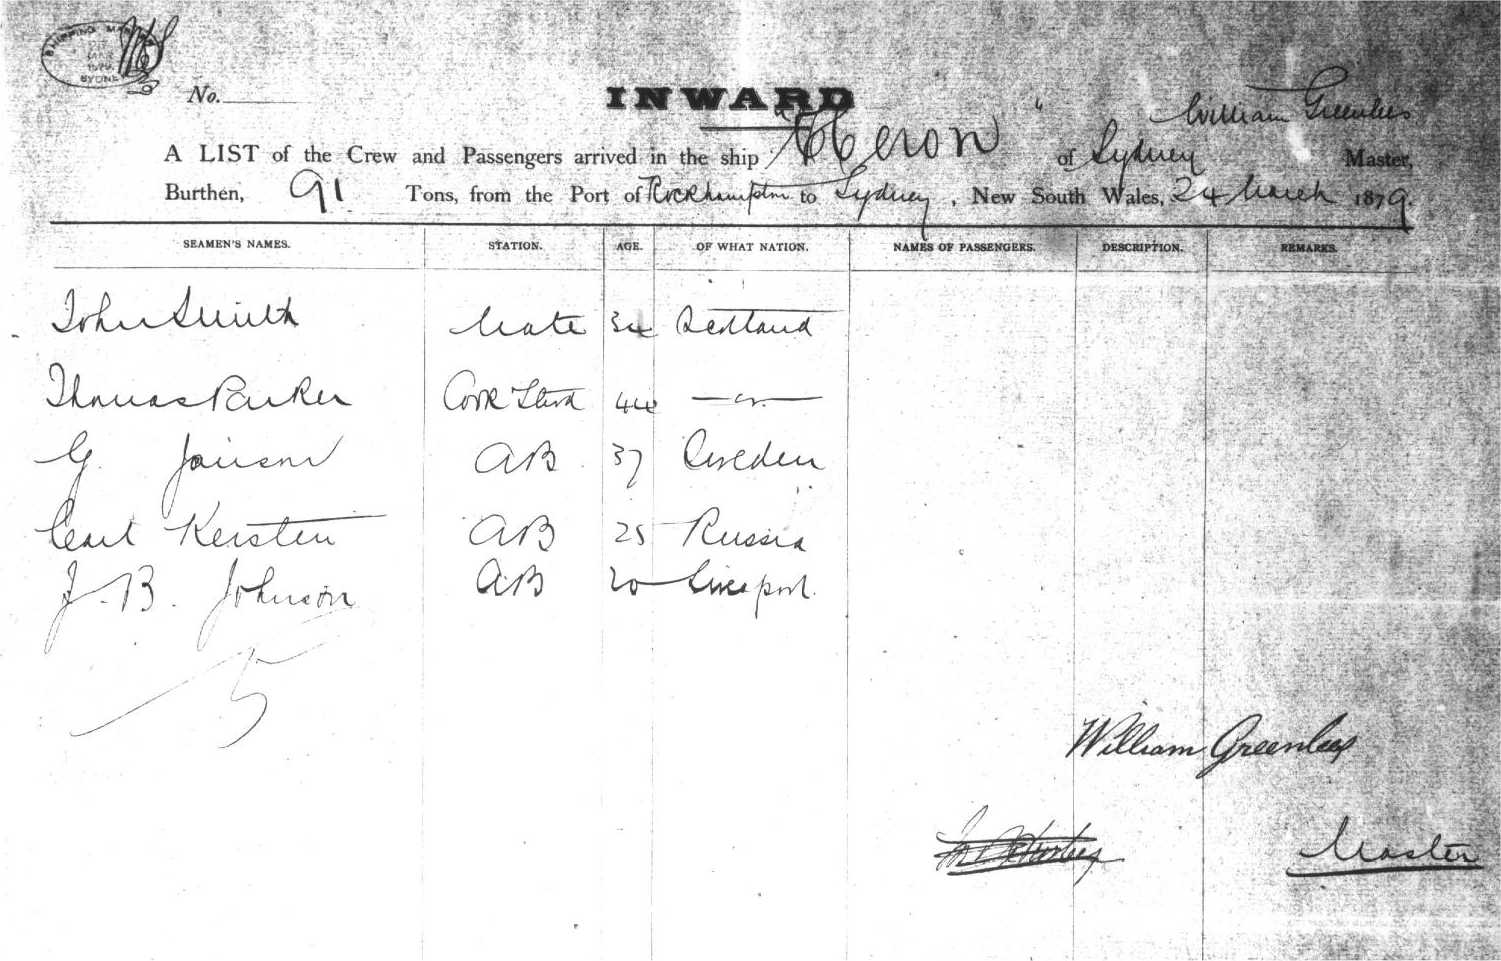 SHIPPING MASTER
SYDNEY
No.
INWARD
William Greenlees
A LIST of the Crew and Passengers arrived in the ship "Heron" of Sydney Master,
Burthen, 91 Tons, from the Port of Rockhampton to Sydney, New South Wales, 24 March 1879.
SEAMEN'S NAMES. STATION. AGE. OF WHAT NATION. NAMES OF PASSENGERS. DESCRIPTION. REMARKS.
John Smith Mate 34 Scotland
Thomas Parker Cook & Stewd 44 — " —
G. Jonson AB 37 Sweden
Carl Kersten AB 25 Russia
J. B. Johnson AB 20 Liverpool.
5
William Greenlees
Master